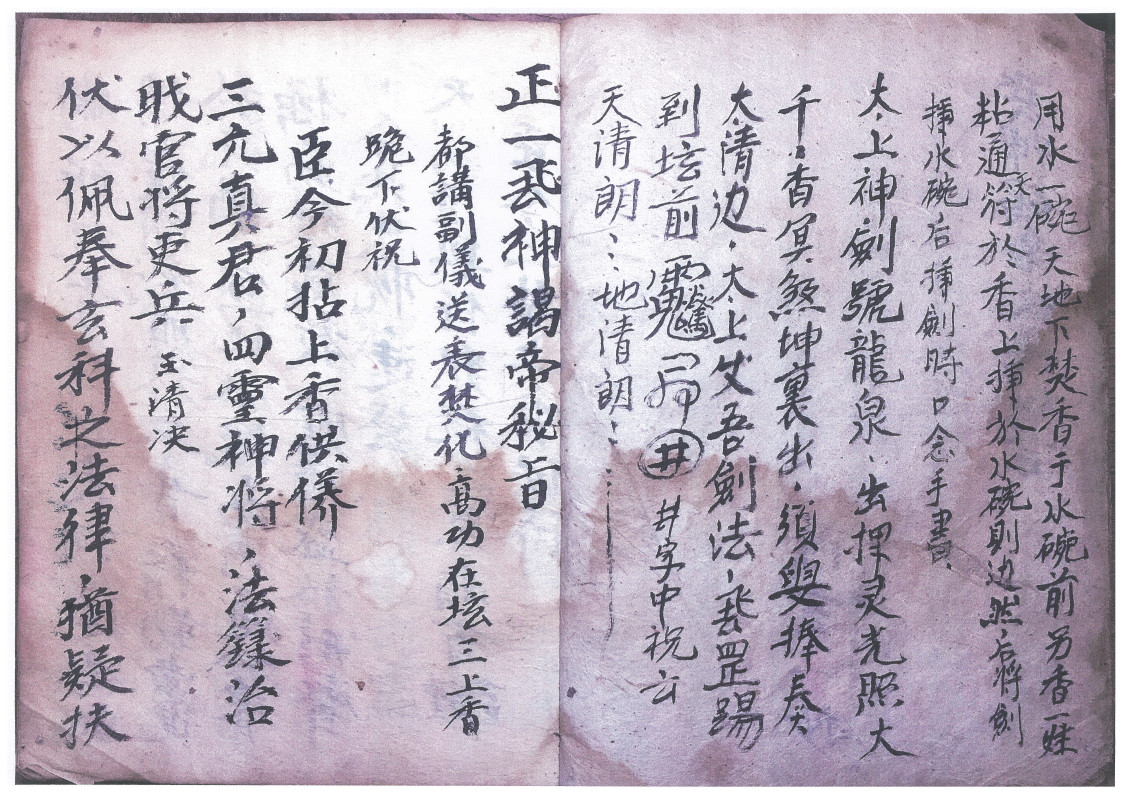 用水一碗天地下焚香于水碗前另香一炷
粘通天符於香上揷於水碗则边然后將劍
揷水碗后揷劍時口念手書
太上神劍號龍泉出灵光照大
千香冥煞坤裏出須臾捧奏
太清边太上吾劍法飛罡踢
到坛前井井字中祝云
天清朗地清朗
正一飛神謁帝秘旨
都講副儀送表焚化高功在坛三上香
跪下伏祝
臣今初拈上香供俻
三元真君四靈神将法籙治
戝官将吏兵玉清决
伏以佩奉玄科之法律猶疑扶